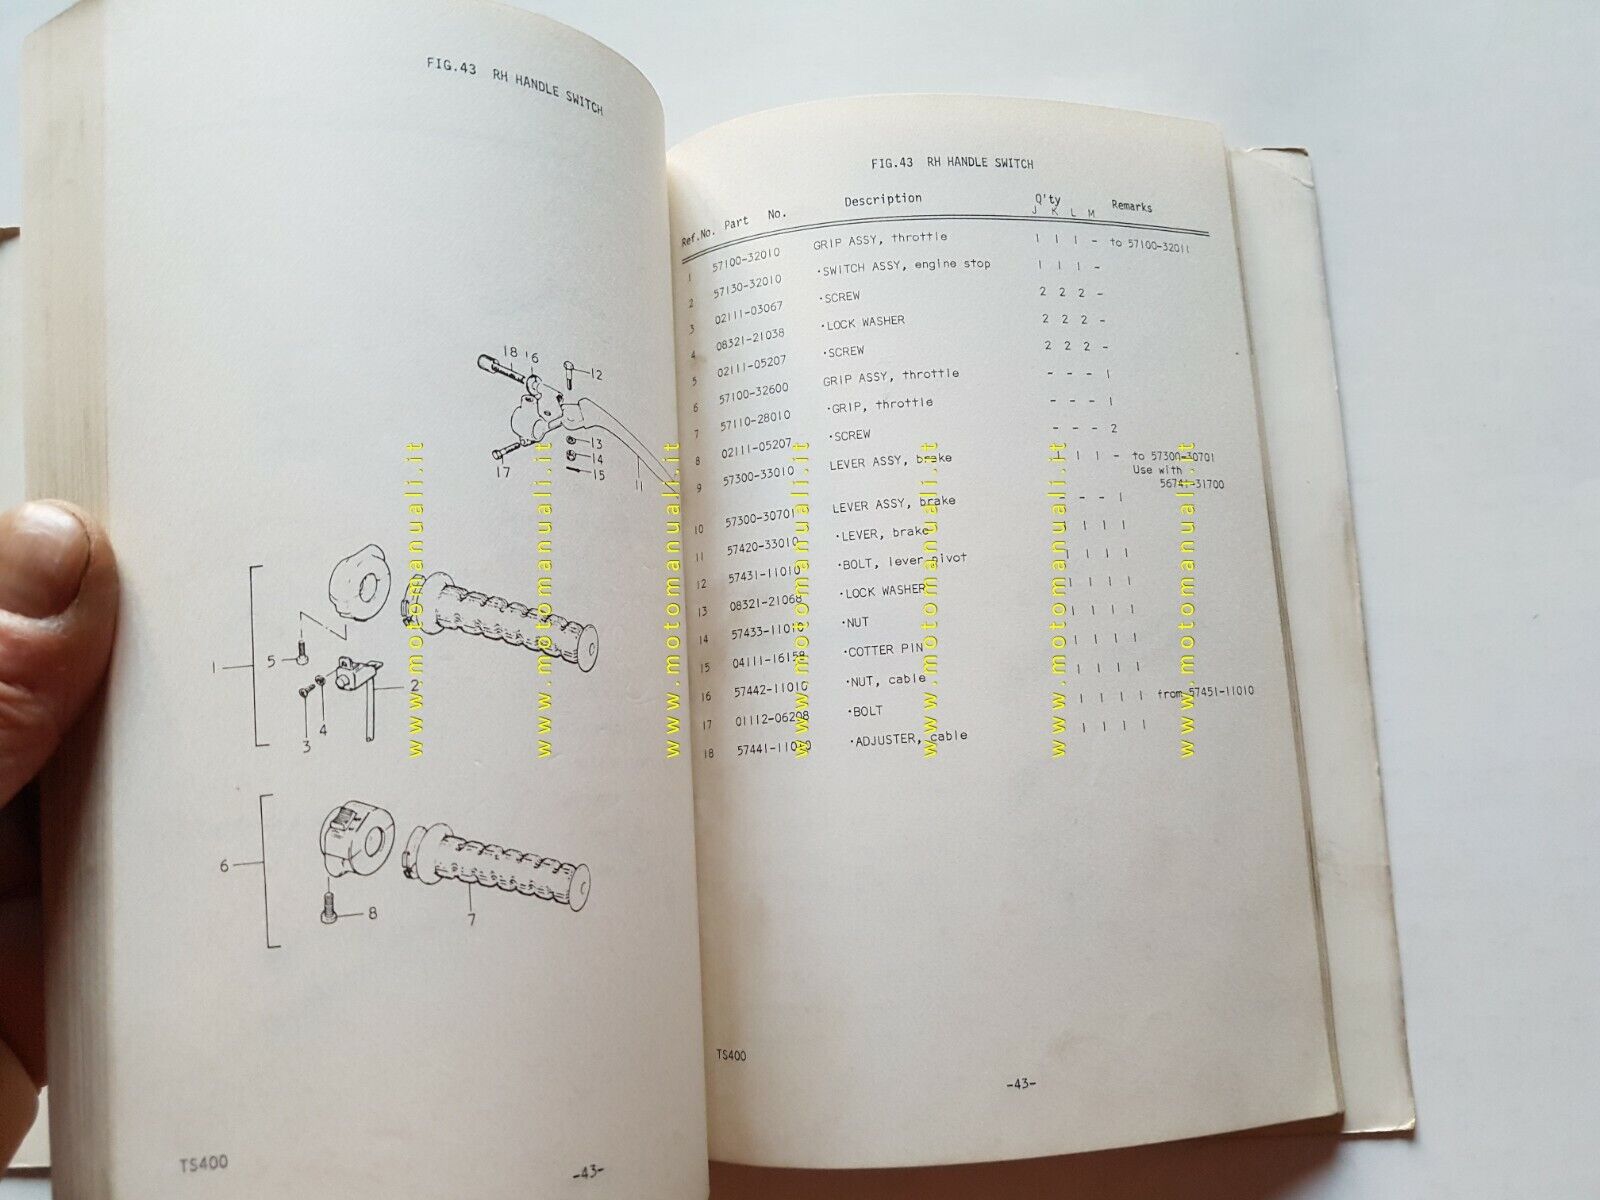 FIG.43 RH HANDLE SWITCH
18
16
12
13
14
15
17
11
1
5
2
4
3
6
8
7
TS400
-43-
FIG.43 RH HANDLE SWITCH
Ref.No. Part No. Description Q'ty Remarks
J K L M
1 57100-32010 GRIP ASSY, throttle 1 1 1 - to 57100-32011
2 57130-32010 ·SWITCH ASSY, engine stop 1 1 1 -
3 02111-03067 ·SCREW 2 2 2 -
4 08321-21038 ·LOCK WASHER 2 2 2 -
5 02111-05207 ·SCREW 2 2 2 -
6 57100-32600 GRIP ASSY, throttle - - - 1
7 57110-28010 ·GRIP, throttle - - - 1
8 02111-05207 ·SCREW - - - 2
9 57300-33010 LEVER ASSY, brake 1 1 1 - to 57300-30701
Use with
56741-31700
10 57300-30701 LEVER ASSY, brake - - - 1
11 57420-33010 ·LEVER, brake 1 1 1 1
12 57431-11010 ·BOLT, lever pivot 1 1 1 1
13 08321-21068 ·LOCK WASHER 1 1 1 1
14 57433-11010 ·NUT 1 1 1 1
15 04111-16158 ·COTTER PIN 1 1 1 1
16 57442-11010 ·NUT, cable 1 1 1 1
17 01112-06208 ·BOLT 1 1 1 1 from 57451-11010
18 57441-11010 ·ADJUSTER, cable 1 1 1 1
TS400
-43-
www.motomanuali.it
www.motomanuali.it
www.motomanuali.it
www.motomanuali.it
www.motomanuali.it
www.motomanuali.it
www.motomanuali.it